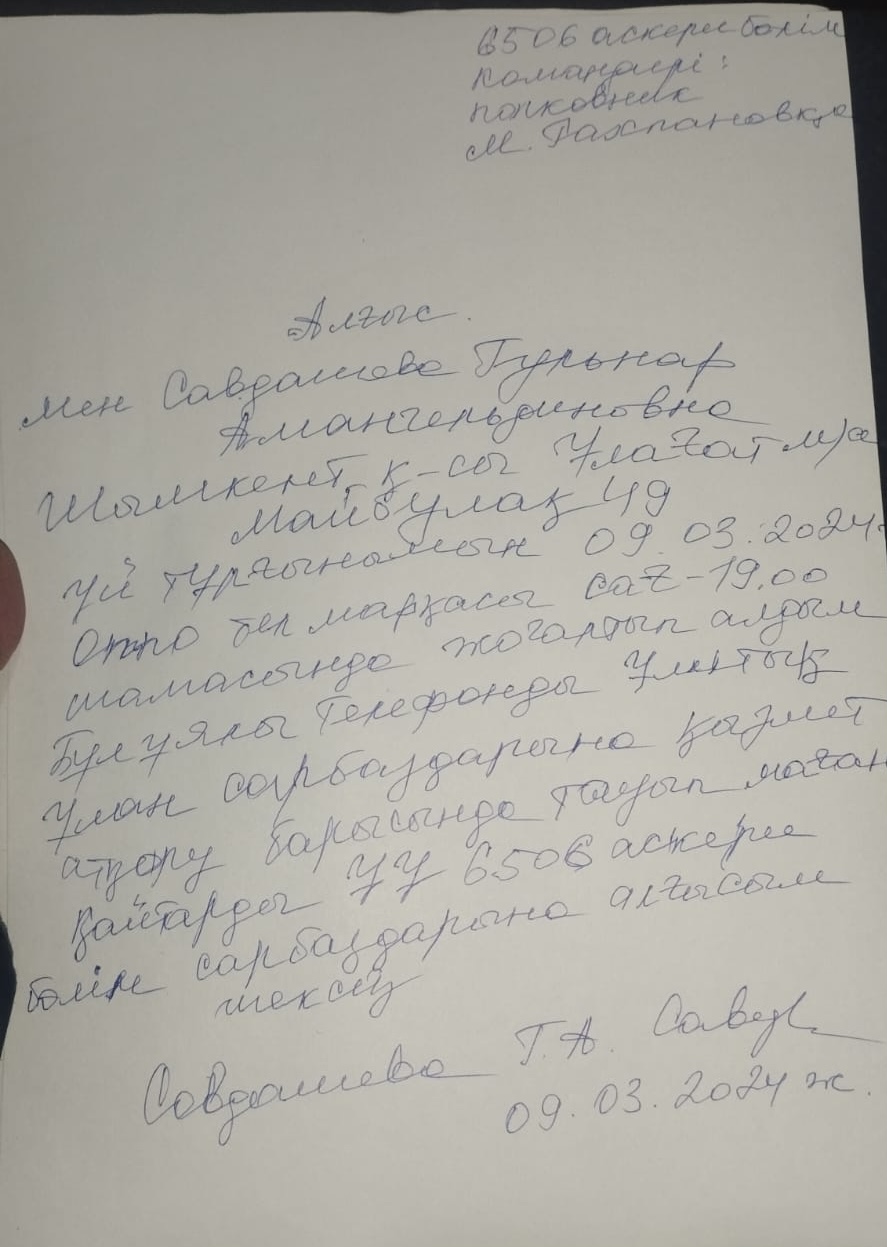 6506 аскери бөлім
командирі:
полковник
М. Рахпановқа
Алғыс.
Мен Савдашева Гульнар
Амангельдиновна
Шымкент қ-сы Ұлағат м/а
Майбұлақ 49
үй тұрғынымын 09.03.2024
Оппо тел маркасы сағ-19.00
шамасында жоғалтып алдым
Бұл ұялы телефонды Ұлттық
Ұлан сарбаздарына қызмет
атқару барысында тауып маған
қайтарды ҰҰ 6506 аскери
бөлім сарбаздарына алғысым
шексіз
Савдашева Г.А.
09.03.2024 ж.